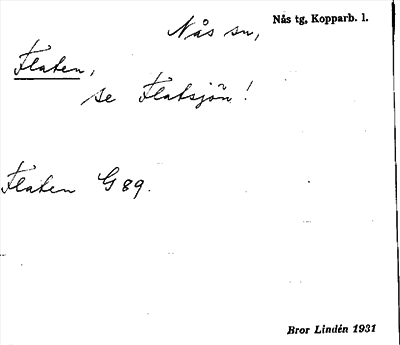 Nås sn,
Nås tg, Kopparb. l.
Flaten,
se Flatsjön!
Flaten G 89.
Bror Lindén 1931